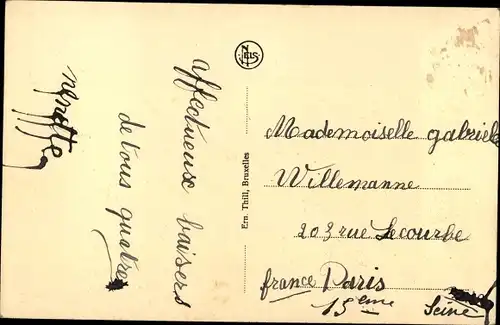 Affectueux baisers
de tous quatre
Nenette
NELS
Ern. Thill, Bruxelles
Mademoiselle gabriele
Willemanne
203 rue Lecourbe
france Paris
15eme Seine